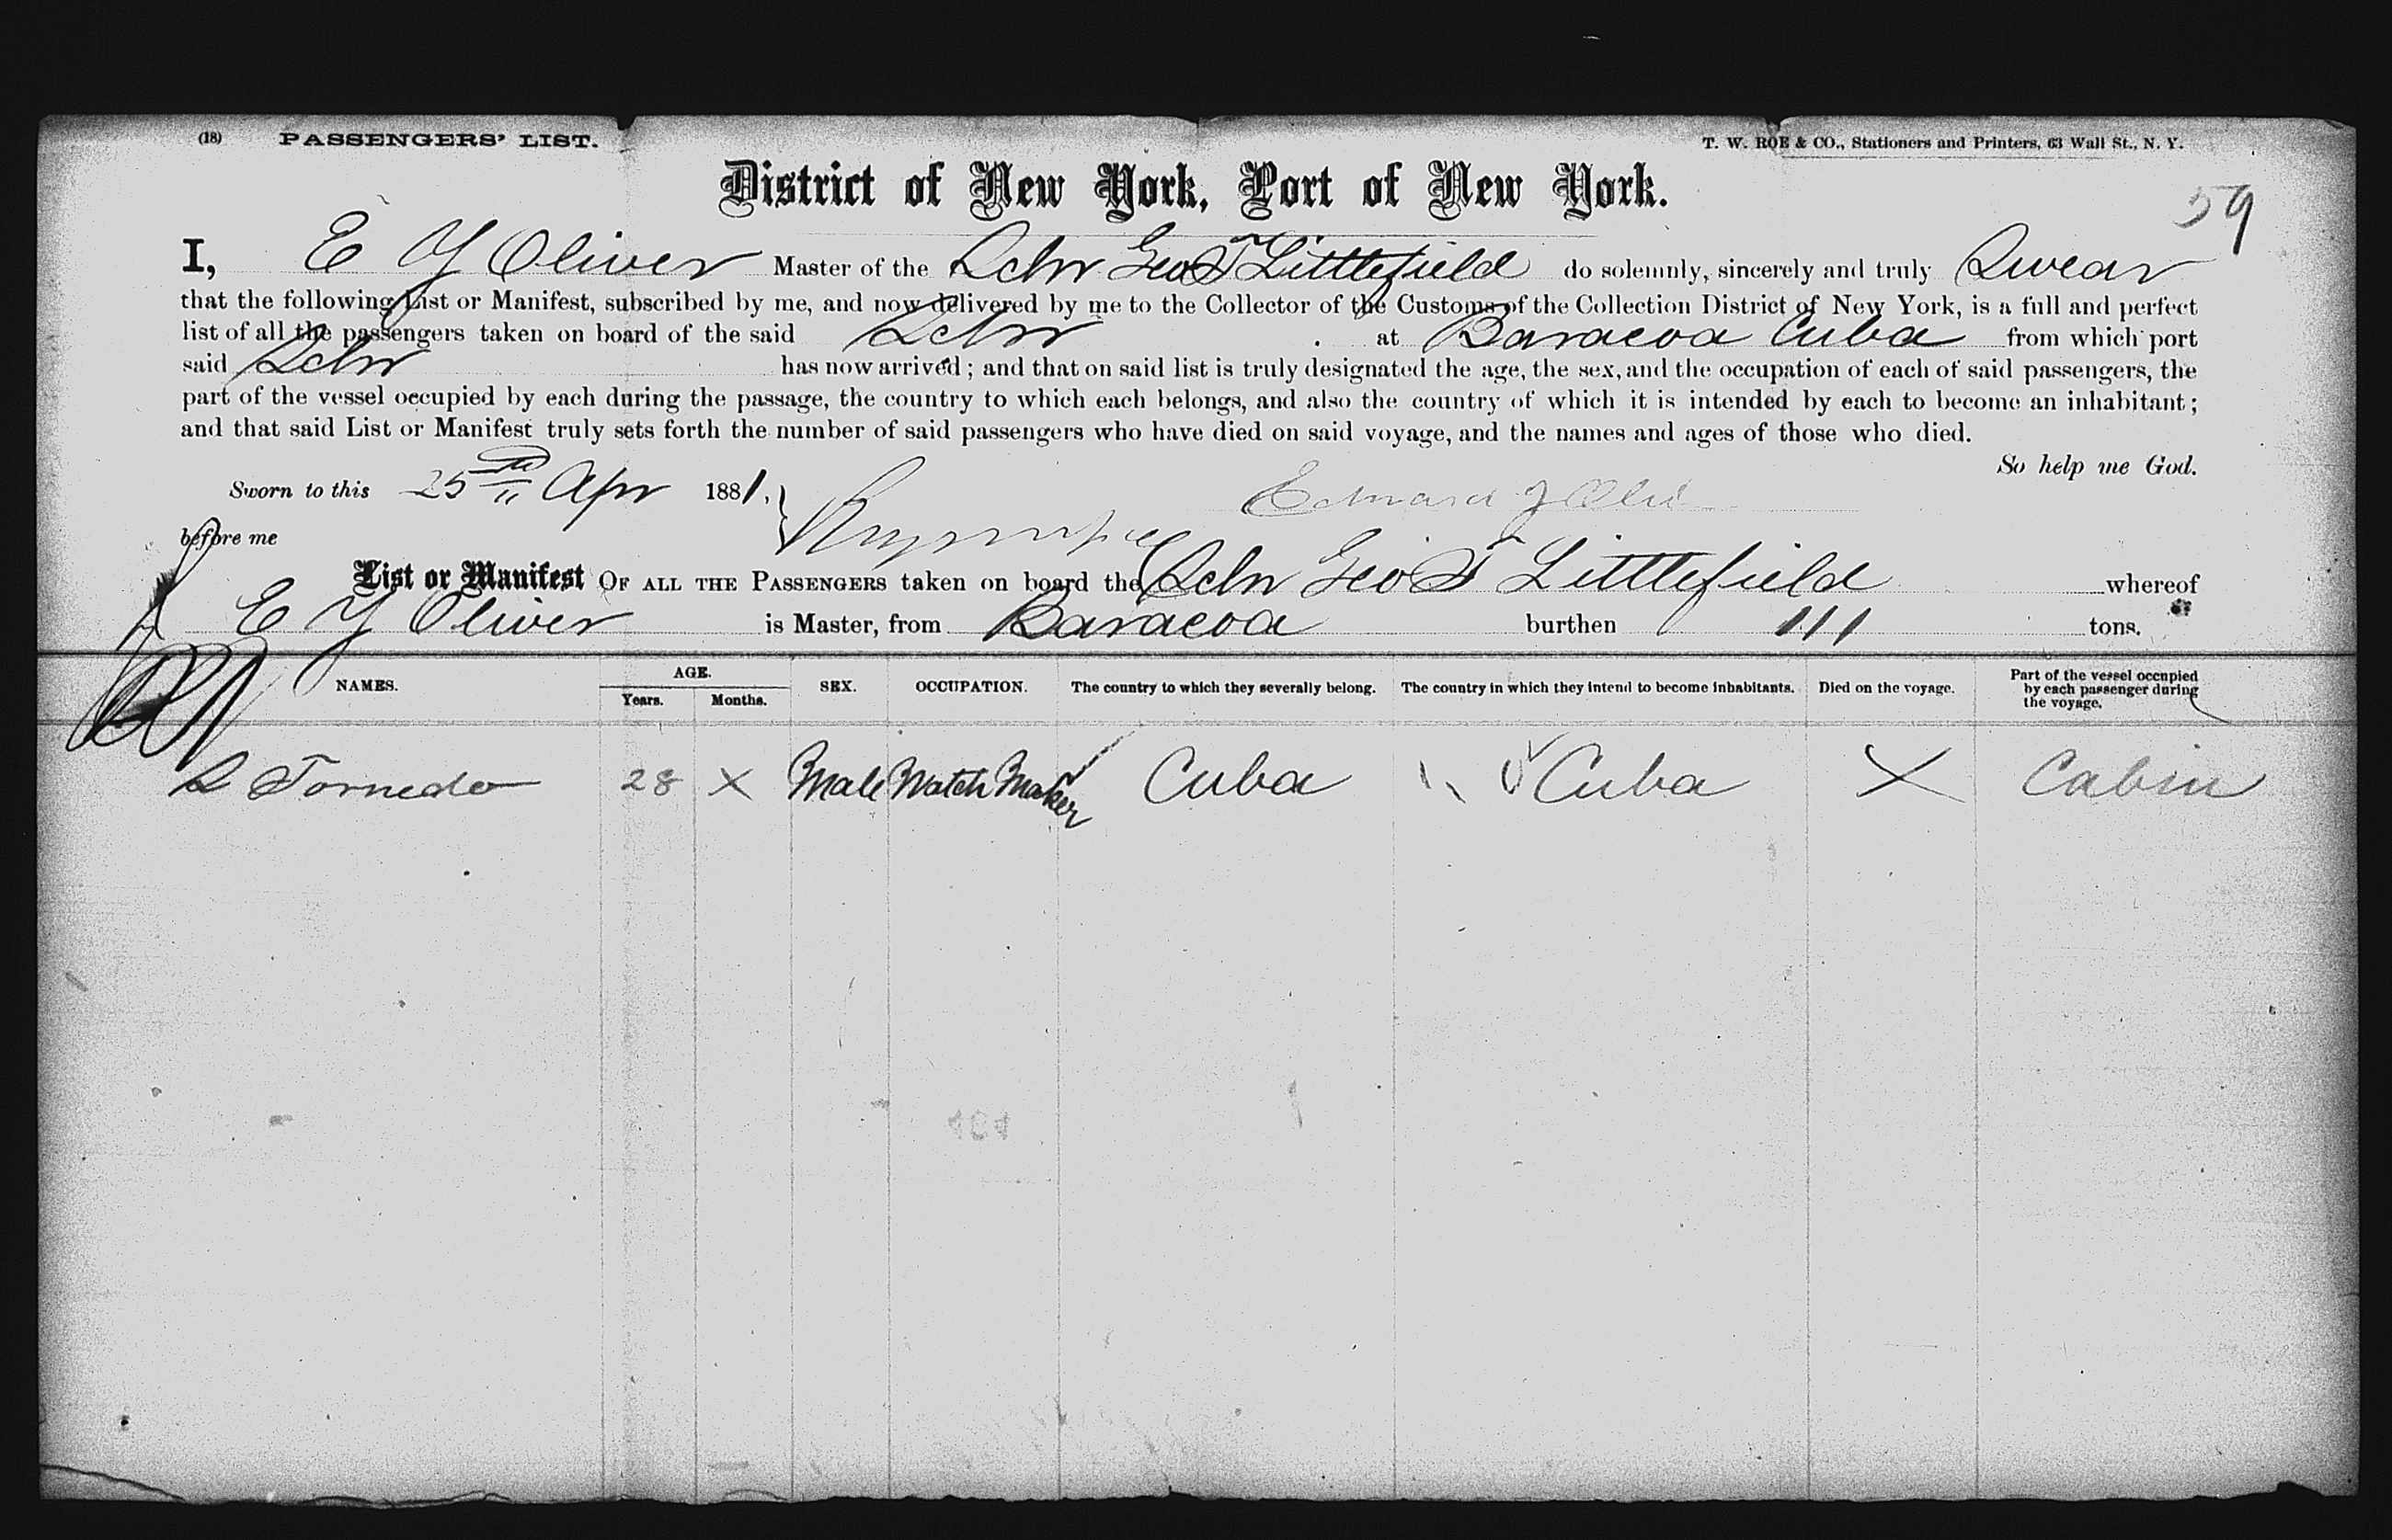 (18) PASSENGERS' LIST.
T. W. ROE & CO., Stationers and Printers, 63 Wall St., N. Y.
59
District of New York, Port of New York.
I, E Y Oliver Master of the Schr Geo T Littlefield do solemnly, sincerely and truly Swear
that the following List or Manifest, subscribed by me, and now delivered by me to the Collector of the Customs of the Collection District of New York, is a full and perfect
list of all the passengers taken on board of the said Schr at Baracoa Cuba from which port
said Schr has now arrived; and that on said list is truly designated the age, the sex, and the occupation of each of said passengers, the
part of the vessel occupied by each during the passage, the country to which each belongs, and also the country of which it is intended by each to become an inhabitant;
and that said List or Manifest truly sets forth the number of said passengers who have died on said voyage, and the names and ages of those who died.
So help me God.
Sworn to this 25th Apr 1881.
Edward
before me
List or Manifest OF ALL THE PASSENGERS taken on board the Schr Geo T Littlefield whereof
E Y Oliver is Master, from Baracoa burthen 111 tons.
NAMES. AGE. Years. Months. SEX. OCCUPATION. The country to which they severally belong. The country in which they intend to become inhabitants. Died on the voyage. Part of the vessel occupied by each passenger during the voyage.
S Tornedo 28 X Male Watch Maker Cuba Cuba X Cabin